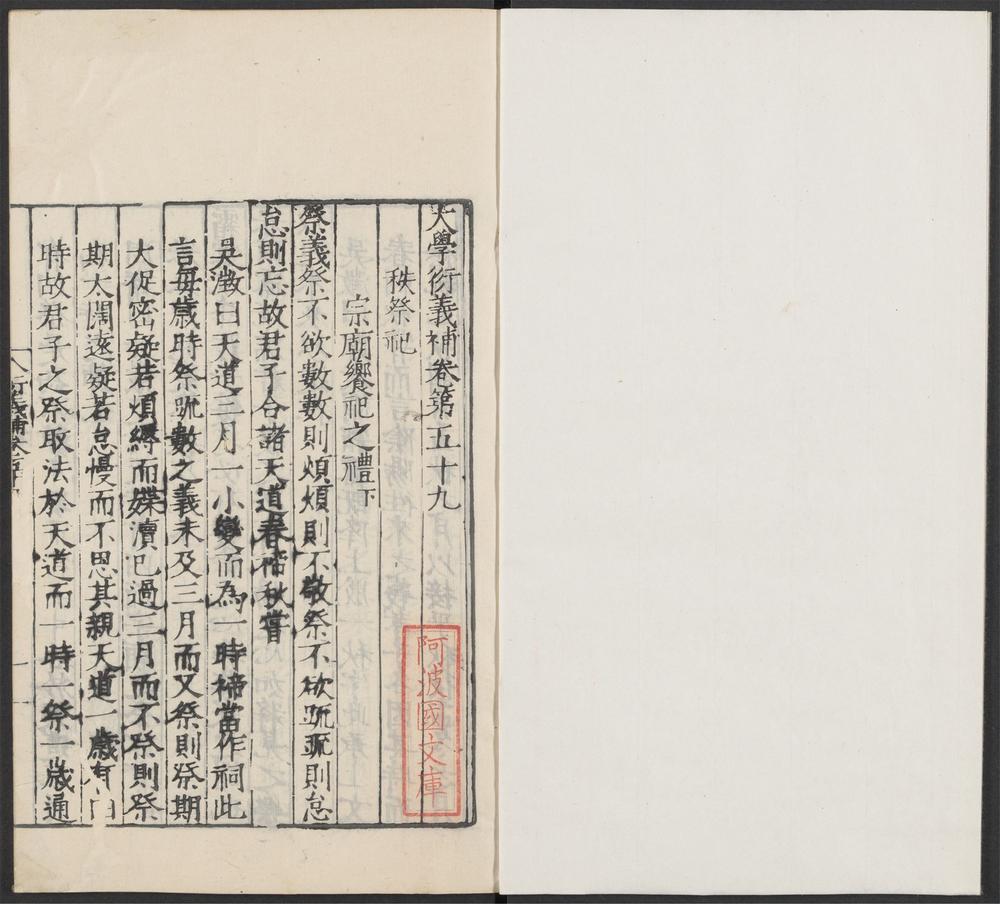 大學衍義補卷第五十九
秩祭祀
宗廟饗祀之禮下
祭義祭不欲數數則煩煩則不敬祭不欲䟽䟽則怠
怠則忘故君子合諸天道春禘秋嘗
吳澂曰天道三月一小變而為一時禘當作祠此
言每歲時祭䟽數之義未及三月而又祭則祭期
大促密疑若煩縟而媟瀆已過三月而不祭則祭
期太闊遠疑若怠慢而不思其親天道一歲有四
時故君子之祭取法於天道而一時一祭一歲通
阿波國文庫